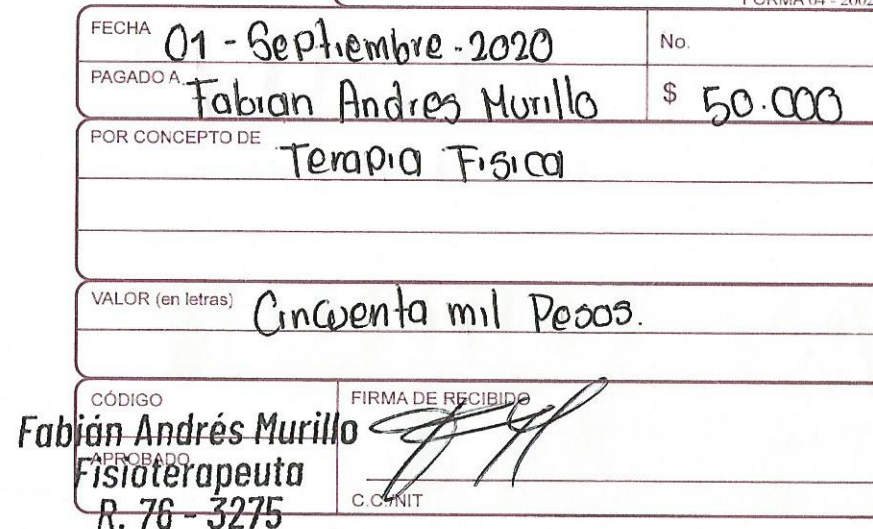 FORMA 04 - 2002
FECHA 01 - Septiembre - 2020 No.
PAGADO A Fabian Andres Murillo $ 50.000
POR CONCEPTO DE Terapia Fisica
VALOR (en letras) Cincuenta mil Pesos.
CÓDIGO FIRMA DE RECIBIDO
Fabián Andrés Murillo
APROBADO
Fisioterapeuta
C.C./NIT
R. 76 - 3275